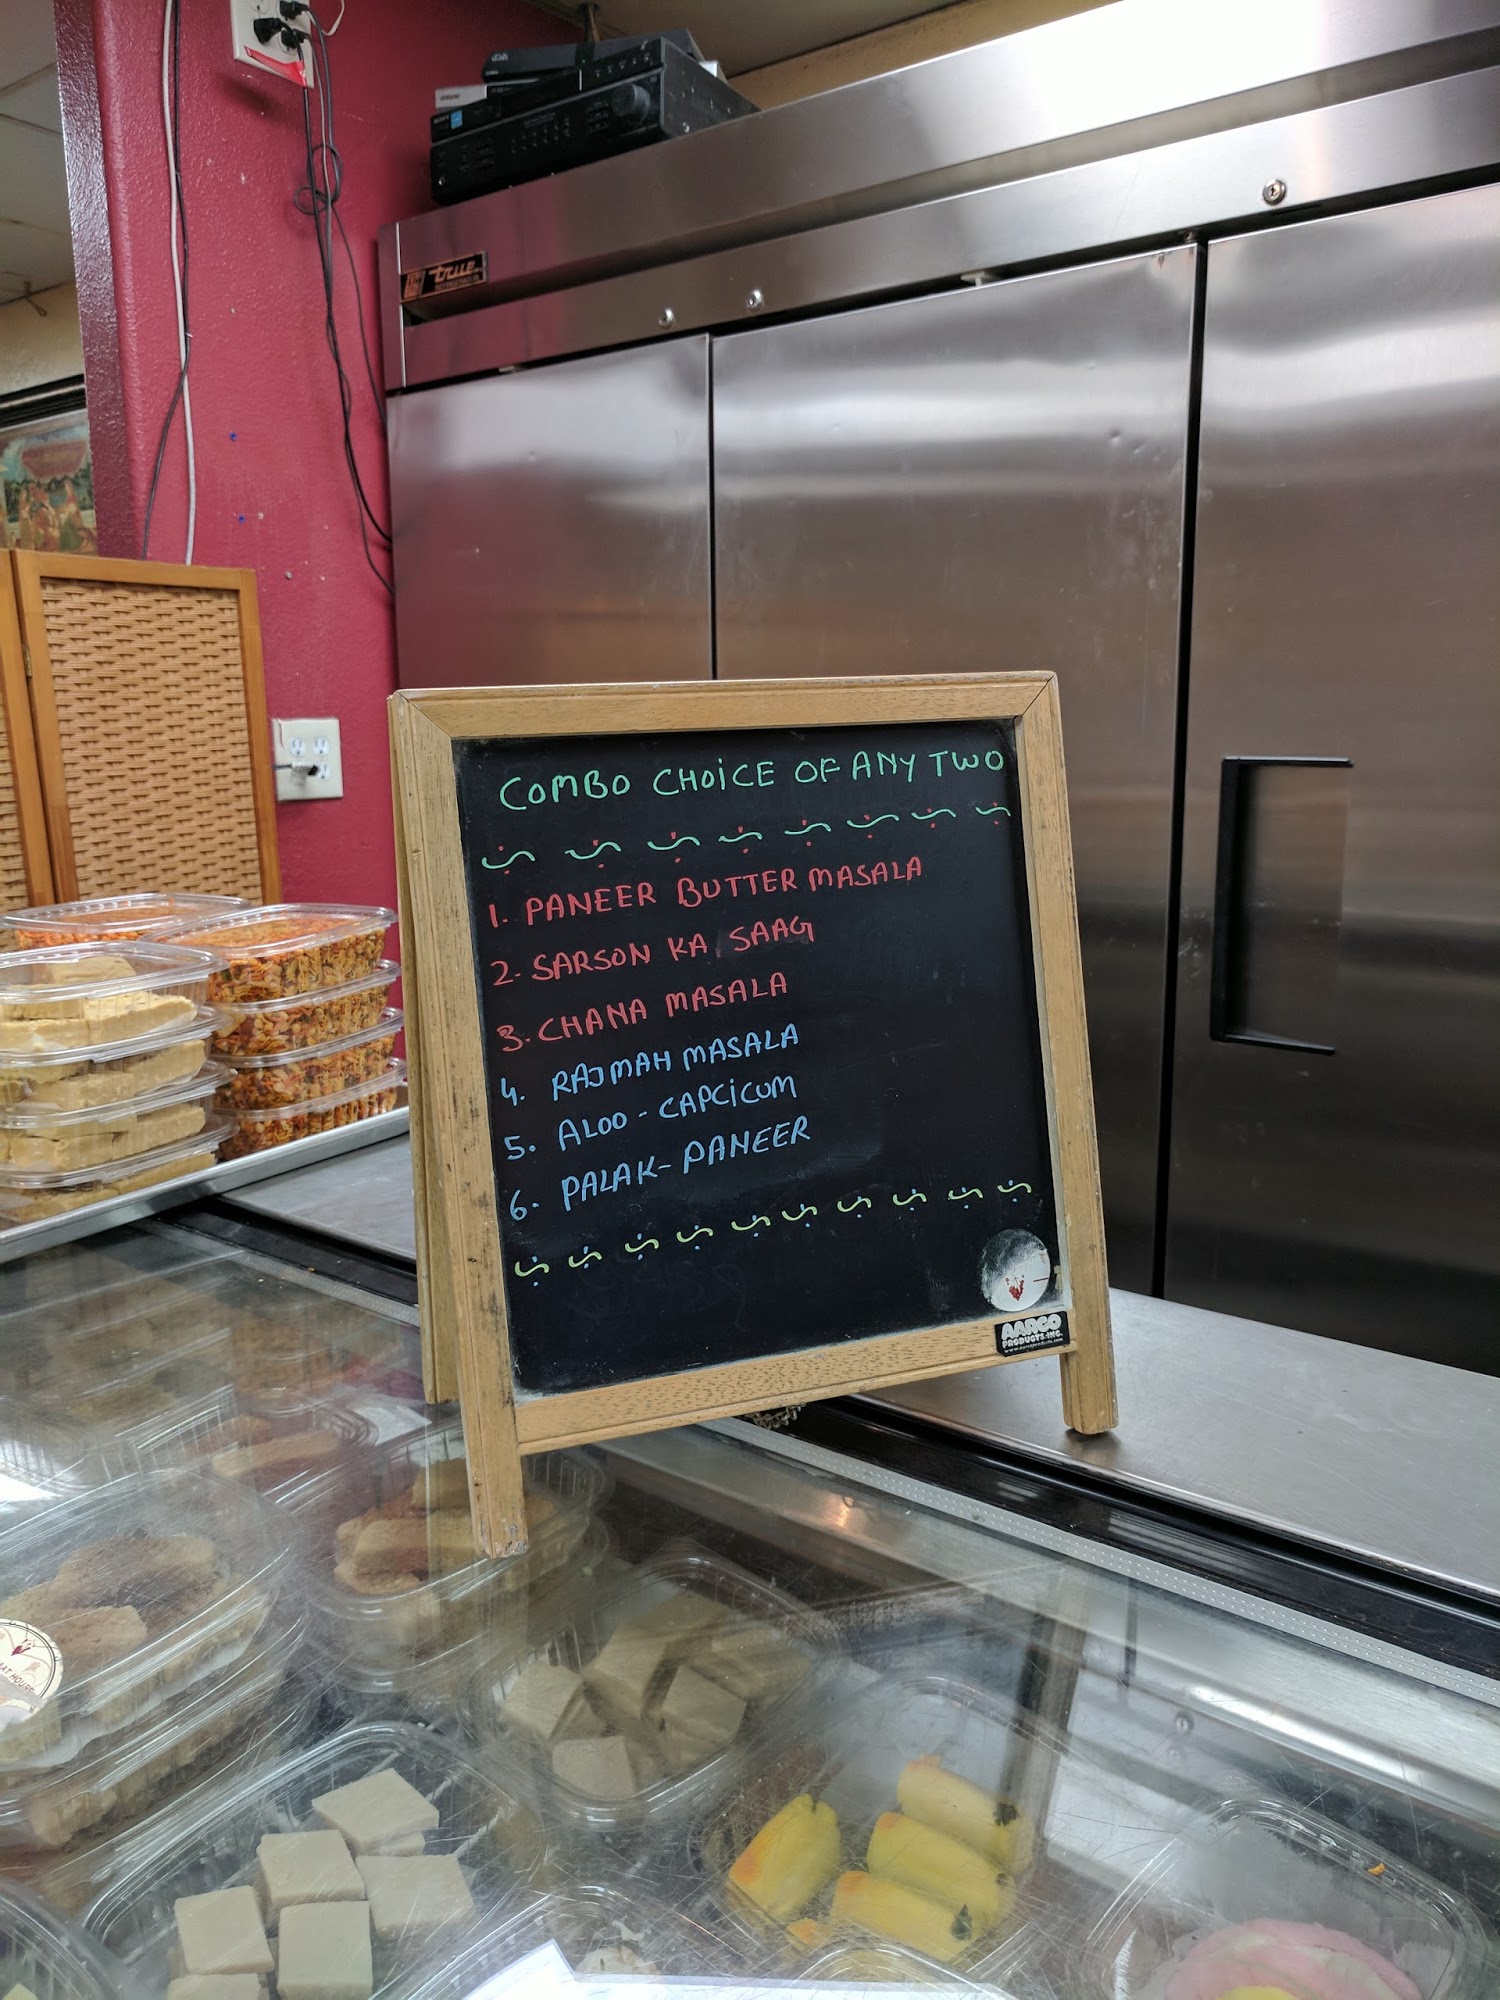 dish
SONY
true
COMBO CHOICE OF ANY TWO
1. PANEER BUTTER MASALA
2. SARSON KA SAAG
3. CHANA MASALA
4. RAJMAH MASALA
5. ALOO - CAPCICUM
6. PALAK - PANEER
AARCO
PRODUCTS, INC.